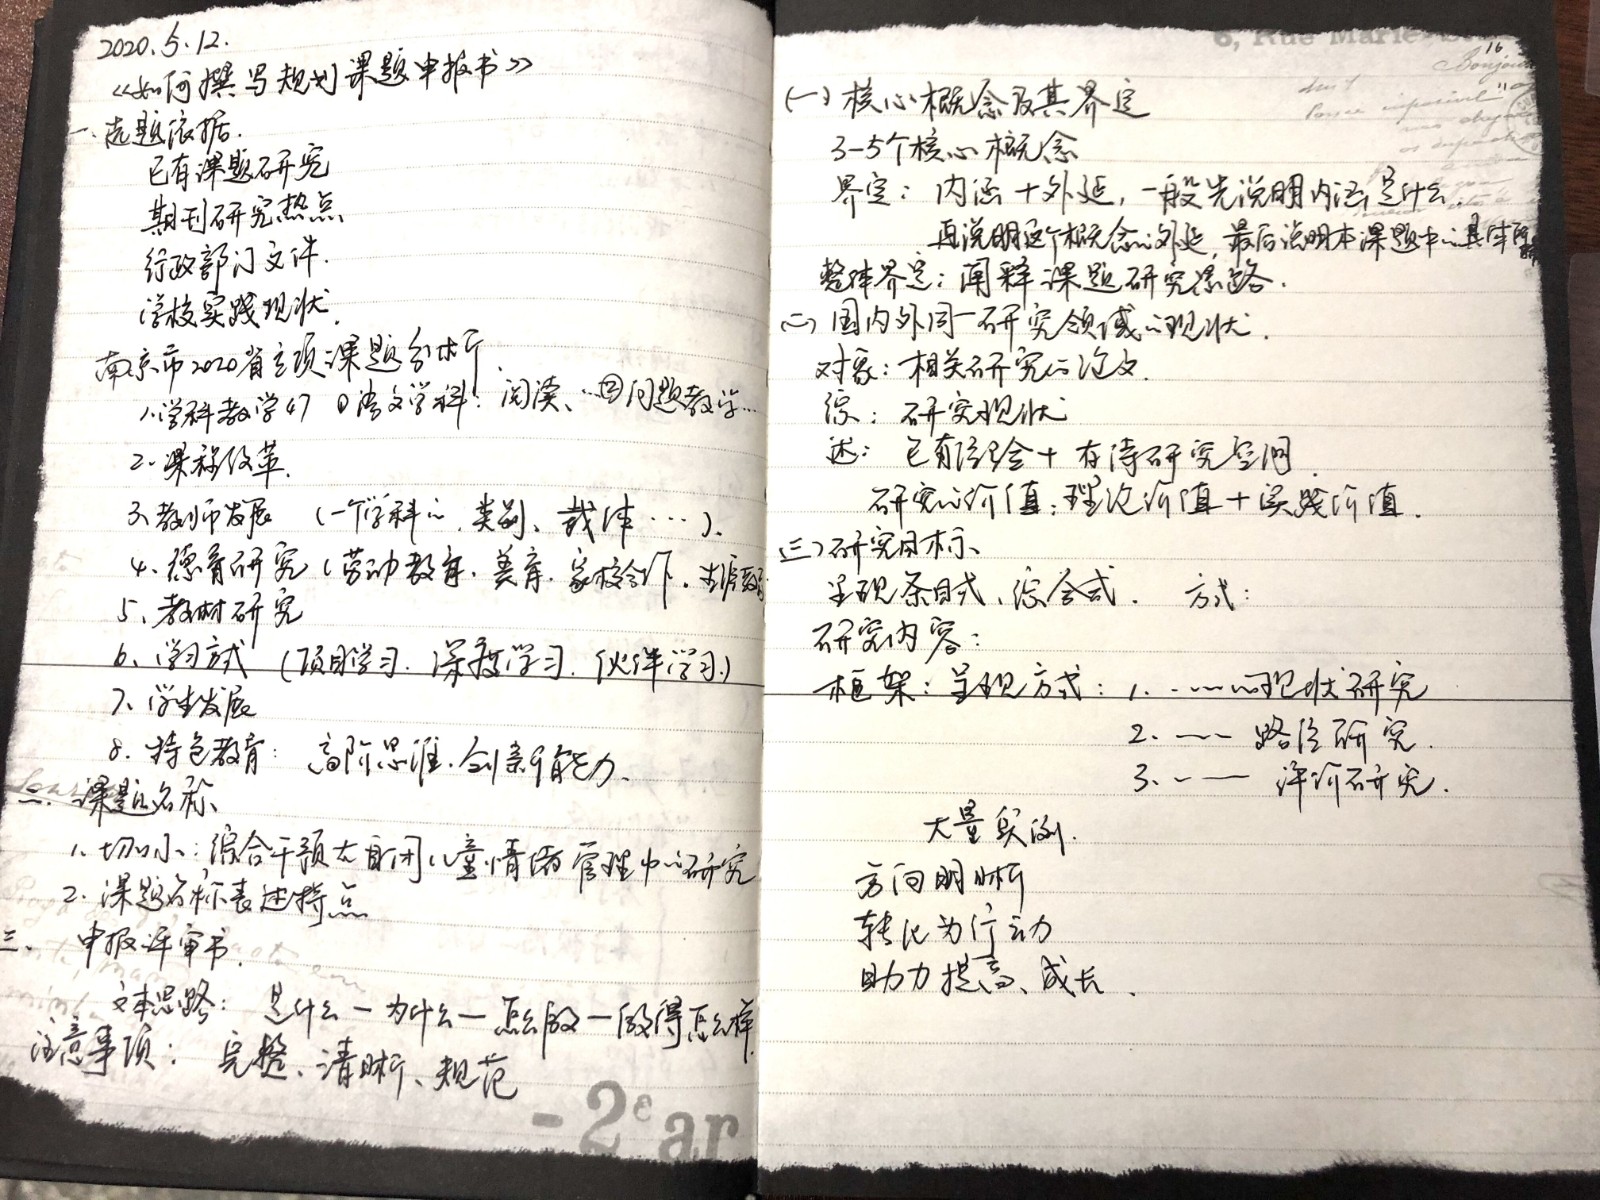 2020.5.12.
《如何撰写规划课题申报书》
一、选题依据.
已有课题研究
期刊研究热点
行政部门文件.
学校实践现状.
南京市2020省立项课题分析.
1.学科教学47 ①语文学科:阅读、…②问题教学…
2.课程改革.
3.教师发展 (一个学科的、类别、载体…).
4.德育研究(劳动教育.美育.家校合作.生涯教育
5、教材研究
6.学习方式 (项目学习.深度学习.伙伴学习.)
7.学生发展
8.特色教育: 高阶思维.创新能力.
二.课题名称.
1.切口小:综合干预在自闭儿童情绪管理中的研究
2.课题名称表述特点
三、 申报评审书.
文本思路: 是什么—为什么—怎么做—做得怎么样.
注意事项: 完整、清晰、规范
- 2e ar
6, Rue Marie
16
Bonjour
(一)核心概念及其界定
3-5个核心概念
界定:内涵+外延,一般先说明内涵是什么.
再说明这个概念的外延,最后说明本课题中的具体所
整体界定:阐释课题研究思路.
(二)国内外同一研究领域的现状.
对象:相关研究的论文.
综:研究现状
述: 已有结论+有待研究空间.
研究的价值:理论价值+实践价值.
(三)研究目标、
呈现条目式、综合式. 方式:
研究内容:
框架:呈现方式: 1. ……的现状研究
2. —— 路径研究.
3. —— 评价研究.
大量实例.
方向明晰
转化为行动
助力提高、成长.